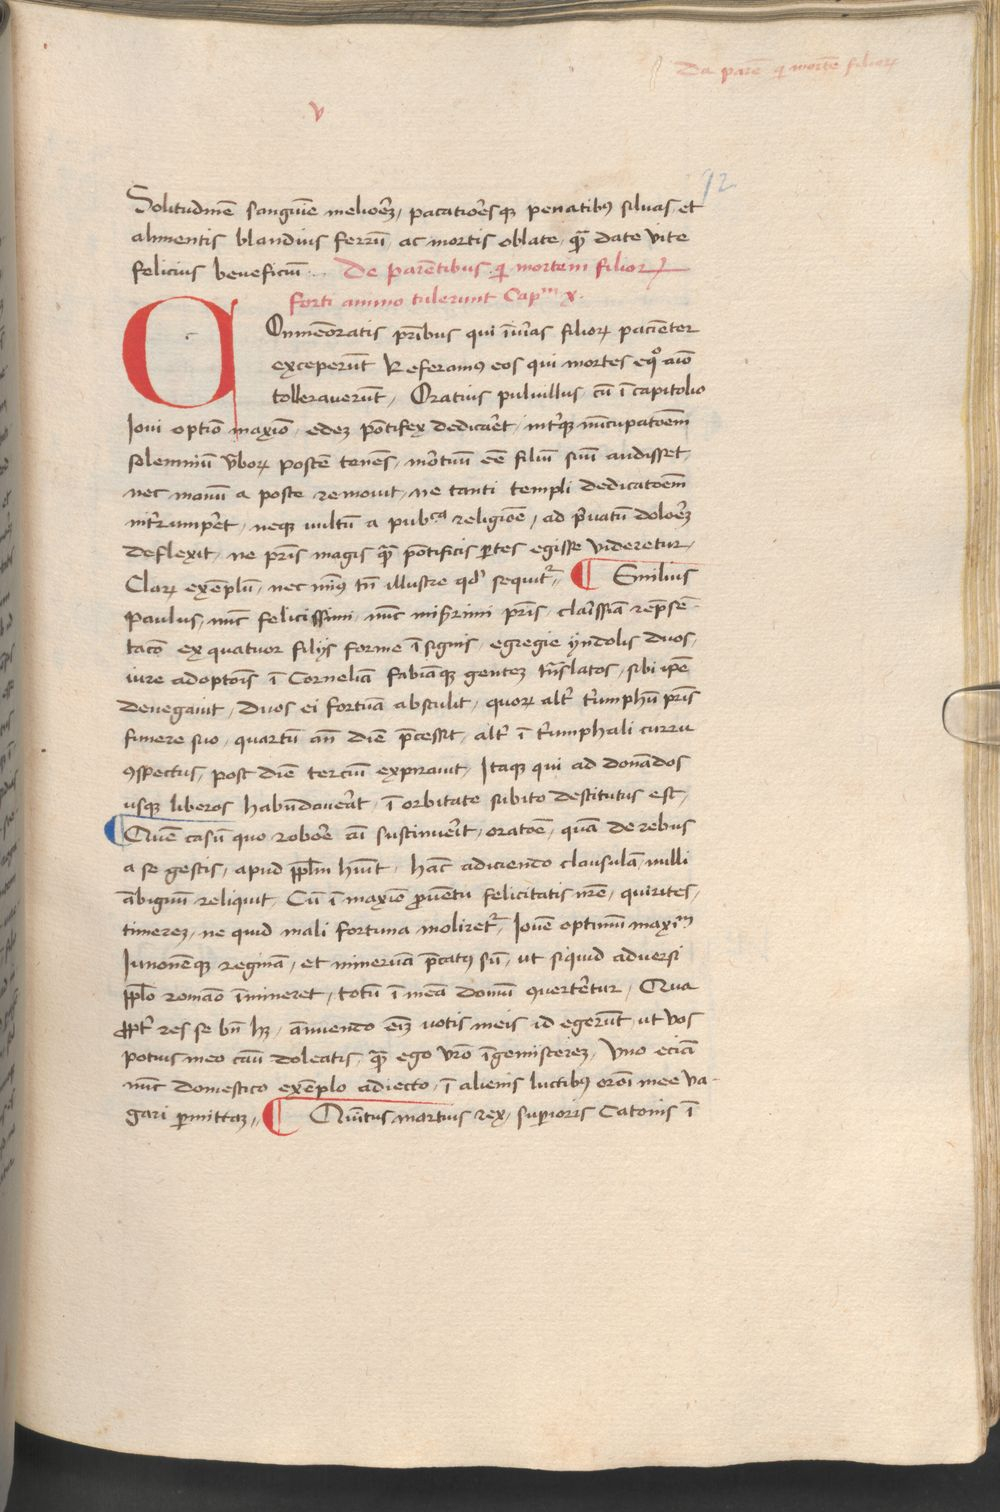 De parē q̄ mortē filioꝝ
v
92
Solitudinē sanguīe melioꝛēz, pacatioꝛēsqȝ penatibꝰ siluas, et
alimentis blandius ferrū, ac mortis oblate, qꝫ̄ date vite
felicius beneficiū. De parētibus q̄ mortem filioꝝ
forti animo tulerunt Capᵐ x.
Onmēoratis pr̄ibus qui īiur̄as filioꝝ paciēter
exceperūt Referamꝰ eos qui mortes eqᵒ aīo
tollerauerūt, Oratius puluillus, cū ī capitolio
Ioui optīo maxīo, edeȝ pōtifex dedicar̄et, int̄qȝ nūcupatoēm
solemniū v̄boꝝ postē tenēs, mortuū eē filiū suū audisset,
nec manū a poste remouit, ne tanti templi dedicatoēm
int̄rumper̄et, neqȝ uultū a pubᶜᵃ religiōe, ad p̄uatū doloēȝ
deflexit, ne pr̄is magis qꝫ̄ pōtificis ꝑtes egisse videretur,
Claꝝ exēplū, nec minꝰ tn̄ illustre qd̓ sequit̄. ¶ Emilius
Paulus, nūc felicissimi, nūc mis̄rimi pr̄is, clar̄issīa rep̄sē-
tacō ex quatuor filijs forme īsignis, egregie yndolis duos,
iure adoptōis ī Corneliā fabiāqȝ genteȝ tr̄nslatos, sibi ip̄e
denegauit, duos ei fortūa abstulit, quoꝝ alt̄ t̄umphū pr̄is
funere suo, quartū an̄ diē p̄cessit, alt̄ ī t̄umphali curru
ꝯspectus, post diē terciū expirauit, Itaqȝ qui ad donādos
usqȝ liberos habūdauer̄at, ī orbitate subito destitutus est,
¶ Quē casū quo roboꝛē aī sustinuer̄it, oratoē, quā de rebus
a se gestis, apud pplm̄ hūit, hac̄ adiciendo clausulā, nulli
ābiguū reliquit, Cū ī maxīo ꝓuētu felicitatis nr̄e, quirites,
timereȝ, ne quid mali fortuna moliret̄, Iouē optimū maxīᵐ
Iunonēqȝ reginā, et mineruā p̄catꝰ sū, ut siquid aduersi
pplo̅ romāo īmineret, totū ī meā domū ꝯuerter̄etur, Qua
ꝓpt̄ res se bn̄ hȝ, ānuendo eīȝ uotis meis id egerūt, ut vos
potius meo casū doleatis, qꝫ̄ ego vr̄o īgemiscereȝ, Vno eciā
nūc domestico exēplo adiecto, ī alienis luctibꝰ oroī mee va-
gari ꝑmittaȝ, ¶ Quītus martius rex, suꝑioris Catonis ī